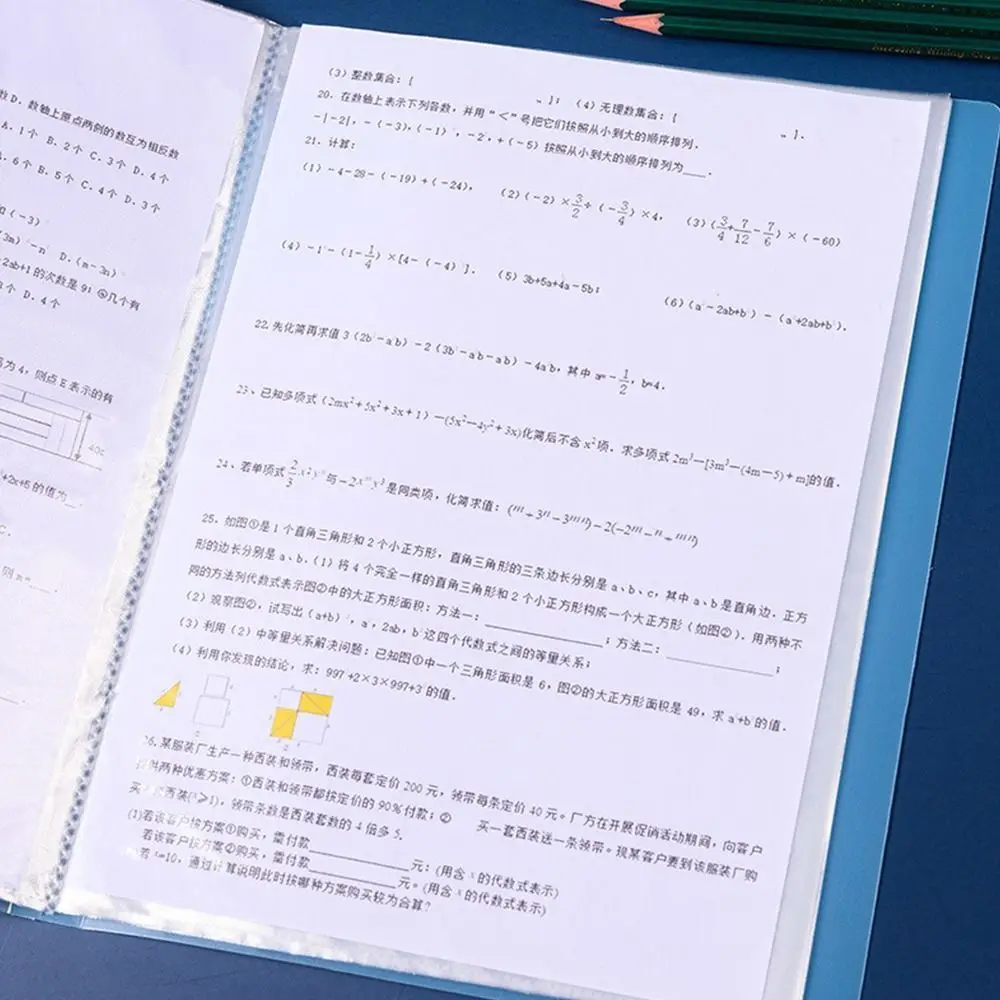 数D.数轴上原点两侧的数互为相反数
A.1个 B.2个 C.3个 D.4个
A.6个 B.5个 C.4个 D.3个
(-3)
D.(m-3n)
2ab+1的次数是9;⑤几个有
D.4个
为4,则点E表示的有
40c
+2x+5的值为__.
C.
则m=___.
(3)整数集合:{ …};(4)无理数集合:{ …}.
20.在数轴上表示下列各数,并用"<"号把它们按照从小到大的顺序排列.
-|-2|,-(-3),(-1)',-2',+(-5)按照从小到大的顺序排列为____.
21.计算:
(1)-4-28-(-19)+(-24), (2)(-2)×3/2÷(-3/4)×4, (3)(3/4+7/12-7/6)×(-60)
(4)-1'-(1-1/4)×[4-(-4)']. (5)3b+5a+4a-5b; (6)(a'-2ab+b')-(a'+2ab+b').
22.先化简再求值3(2b'-a'b)-2(3b'-a'b-ab')-4a'b,其中a=-1/2,b=4.
23、已知多项式(2mx²+5x²+3x+1)—(5x²—4y²+3x)化简后不含x²项.求多项式2m³—[3m³—(4m—5)+m]的值.
24、若单项式2/3x²yⁿ与-2xᵐy³是同类项,化简求值:(m+3n-3mn)-2(-2m-n+mn)
25.如图①是1个直角三角形和2个小正方形,直角三角形的三条边长分别是a、b、c,其中a、b是直角边.正方
形的边长分别是a、b.(1)将4个完全一样的直角三角形和2个小正方形构成一个大正方形(如图②).用两种不
同的方法列代数式表示图②中的大正方形面积:方法一:____________;方法二:____________;
(2)观察图②,试写出(a+b)',a',2ab,b'这四个代数式之间的等量关系;
(3)利用(2)中等量关系解决问题:已知图①中一个三角形面积是6,图②的大正方形面积是49,求a'+b'的值.
(4)利用你发现的结论,求:997'+2×3×997+3'的值.
26.某服装厂生产一种西装和领带,西装每套定价200元,领带每条定价40元。厂方在开展促销活动期间,向客户
提供两种优惠方案:①西装和领带都按定价的90%付款;② 买一套西装送一条领带。现某客户要到该服装厂购
买x套西装(x≥1),领带条数是西装套数的4倍多5.
(1)若该客户按方案①购买,需付款____________元;(用含x的代数式表示)
若该客户按方案②购买,需付款____________元。(用含x的代数式表示)
若x=10,通过计算说明此时按哪种方案购买较为合算?